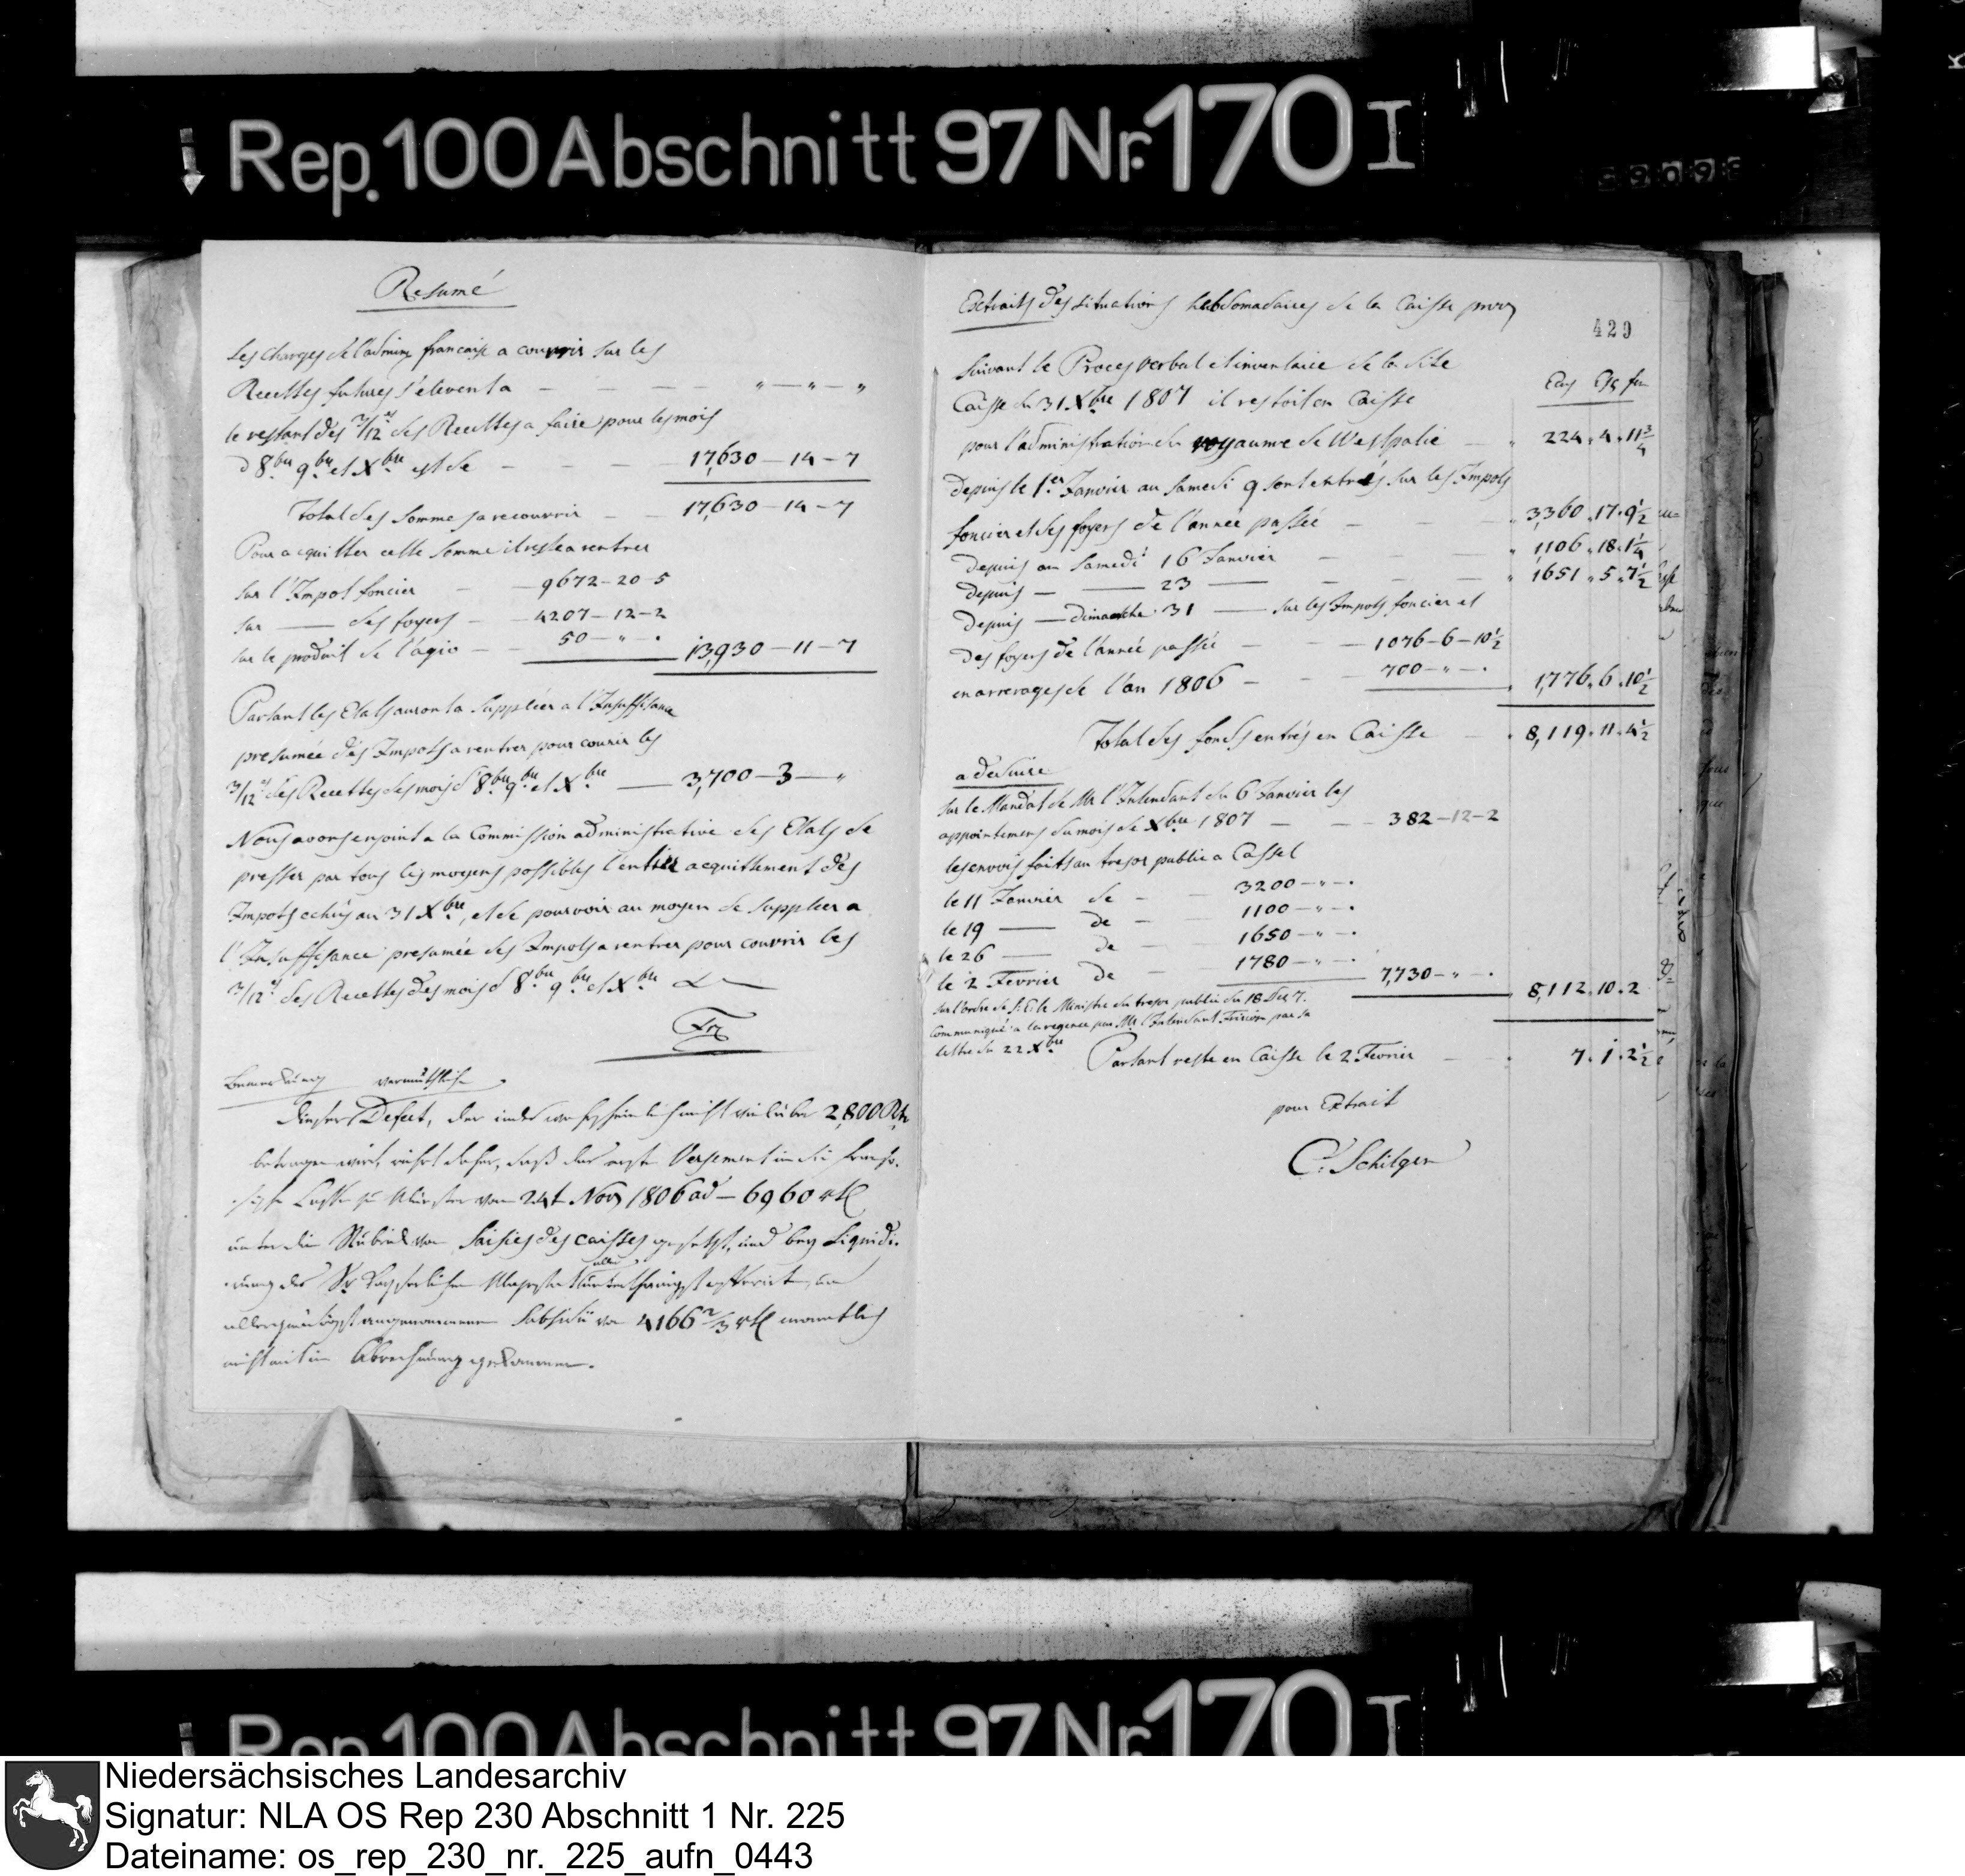 Rep. 100 Abschnitt 97 Nr. 170 I
Resumé
Les charges de l'admin francaise a couvrir sur les
Recettes futures s'elevent a — — — — " — " — "
le restant des 3/12es des Recettes a faire pour les mois
d 8bre 9bre et Xbre est de — — — 17,630 — 14 — 7
Total des Sommes a recouvrir — — 17,630 — 14 — 7
Pour acquitter cette somme il reste a rentrer
sur l'Impot foncier — — 9672 - 20 - 5
sur — des foyers — — 4207 - 12 - 2
sur le produit de l'agio — — 50 — " — .
13,930 — 11 — 7
Partant les Etats auront a Suppléer a l'Insuffisance
presumée des Impots a rentrer pour couvrir les
3/12es des Recettes des mois d 8bre 9bre et Xbre — 3,700 — 3 — "
Nous avons enjoint a la Commission administrative des Etats de
presser par tous les moyens possibles l'entier acquittement des
Impots echus au 31 Xbre, et de pourvoir au moyen de Suppleer a
l'Insuffisance presumée des Impots a rentrer pour couvrir les
3/12es des Recettes des mois d 8bre 9bre et Xbre
Bemerkung vermuthlich
dieser Defect, der indes wahrscheinlich nicht viel über 2,800 Rth
betragen wird, rührt daher, daß das erste Versement in die franzö-
sische Casse zu Münster vom 24t Nov 1806 ad — 6960 rtl
unter die Rubrik von Saisies des caisses gesetzt, und bey Liquidi-
rung des Sr Kayserlichen Majestät aller unterthänigst offerirten, und
allergnädigst angenommenen Subsidii von 4166 2/3 rtl monatlich
nicht mit in Abrechnung gekommen.
Extraits des situations hebdomadaires de la Caisse prov
429
Suivant le Proces verbal et inventaire de la dite
Ecus Gs fen
Caisse du 31 Xbre 1807 il restoit en Caisse
pour l'administration du royaume de Westpalie — " 224 . 4 . 11 3/4
Depuis le 1er Janvier au Samedi 9 sont entrés sur les Impots
foncier et des foyers de l'année passée — — — " 3,360 . 17 . 9 1/2
Depuis au Samedi 16 Janvier — — — " 1106 . 18 . 1 1/4
Depuis — — 23 — — — — " 1651 . 5 . 7 1/2
Depuis — dimanche 31 — sur les Impots foncier et
des foyers de l'année passée — — 1076 - 6 - 10 1/2
en arrerages de l'an 1806 — — — 700 — " — .
1,776 . 6 . 10 1/2
Total des fonds entrés en Caisse — . 8,119 . 11 . 4 1/2
a deduire
sur le Mandat de Mr l'Intendant du 6 Janvier les
appointemens du mois de Xbre 1807 — — — 382 - 12 - 2
les envois faits au tresor public a Cassel
le 11 Janvier de — — 3200 — " — .
le 19 — de — 1100 — " — .
le 26 — de — 1650 — " — .
le 2 Fevrier de — 1780 — " — .
7,730 — " — .
8,112 . 10 . 2
sur l'ordre de S: E le Ministre du tresor public du 18 Dec 7.
Communiqué a la regence par Mr l'Intendant par sa
lettre du 22 Xbre
Partant reste en Caisse le 2 Fevrier — . 7 . 1 . 2 1/2
pour Extrait
C. Schilgen
Rep. 100 Abschnitt 97 Nr. 170 I
Niedersächsisches Landesarchiv
Signatur: NLA OS Rep 230 Abschnitt 1 Nr. 225
Dateiname: os_rep_230_nr._225_aufn_0443